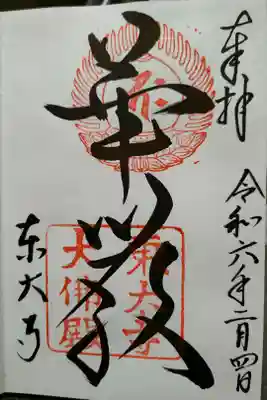 奉拝
令和六年二月四日
華厳
東大寺
東大寺
大佛殿